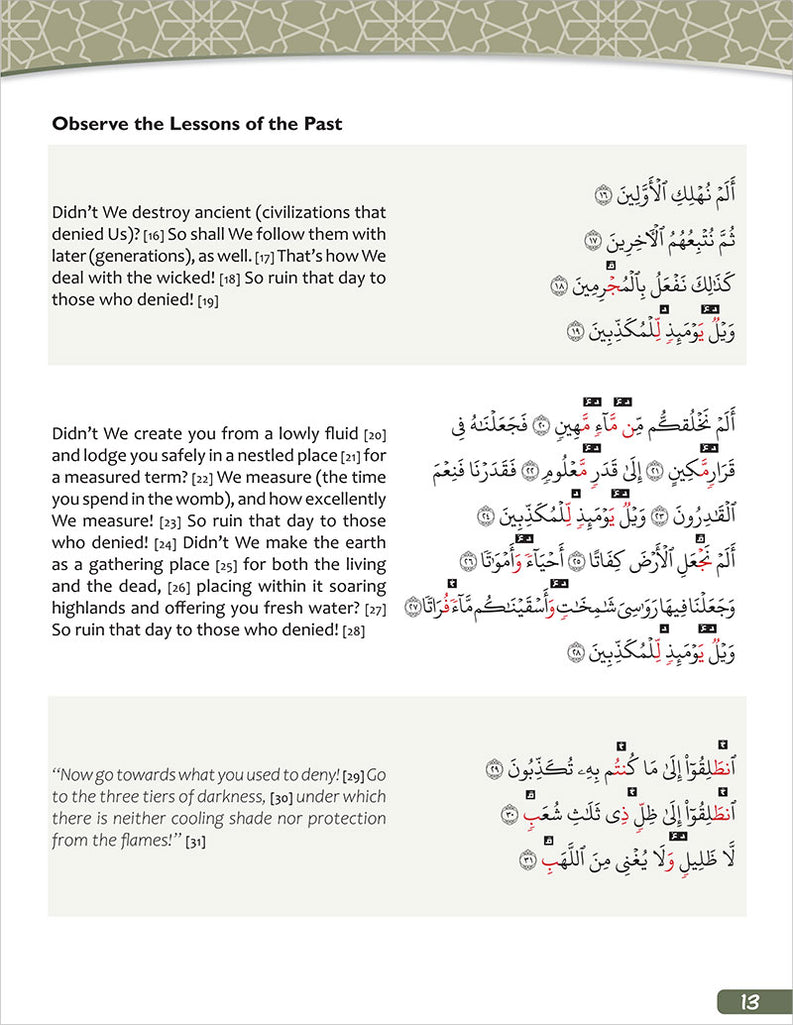 Observe the Lessons of the Past
Didn’t We destroy ancient (civilizations that
denied Us)? [16] So shall We follow them with
later (generations), as well. [17] That’s how We
deal with the wicked! [18] So ruin that day to
those who denied! [19]
أَلَمۡ نُهۡلِكِ ٱلۡأَوَّلِينَ ١٦
ثُمَّ نُتۡبِعُهُمُ ٱلۡأٓخِرِينَ ١٧
كَذَٰلِكَ نَفۡعَلُ بِٱلۡمُجۡرِمِينَ ١٨
وَيۡلٞ يَوۡمَئِذٖ لِّلۡمُكَذِّبِينَ ١٩
Didn’t We create you from a lowly fluid [20]
and lodge you safely in a nestled place [21] for
a measured term? [22] We measure (the time
you spend in the womb), and how excellently
We measure! [23] So ruin that day to those
who denied! [24] Didn’t We make the earth
as a gathering place [25] for both the living
and the dead, [26] placing within it soaring
highlands and offering you fresh water? [27]
So ruin that day to those who denied! [28]
أَلَمۡ نَخۡلُقكُّم مِّن مَّآءٖ مَّهِينٖ ٢٠ فَجَعَلۡنَٰهُ فِي
قَرَارٖ مَّكِينٍ ٢١ إِلَىٰ قَدَرٖ مَّعۡلُومٖ ٢٢ فَقَدَرۡنَا فَنِعۡمَ
ٱلۡقَٰدِرُونَ ٢٣ وَيۡلٞ يَوۡمَئِذٖ لِّلۡمُكَذِّبِينَ ٢٤
أَلَمۡ نَجۡعَلِ ٱلۡأَرۡضَ كِفَاتًا ٢٥ أَحۡيَآءٗ وَأَمۡوَٰتٗا ٢٦
وَجَعَلۡنَا فِيهَا رَوَٰسِيَ شَٰمِخَٰتٖ وَأَسۡقَيۡنَٰكُم مَّآءٗ فُرَاتٗا ٢٧
وَيۡلٞ يَوۡمَئِذٖ لِّلۡمُكَذِّبِينَ ٢٨
“Now go towards what you used to deny! [29] Go
to the three tiers of darkness, [30] under which
there is neither cooling shade nor protection
from the flames!” [31]
ٱنطَلِقُوٓاْ إِلَىٰ مَا كُنتُم بِهِۦ تُكَذِّبُونَ ٢٩
ٱنطَلِقُوٓاْ إِلَىٰ ظِلّٖ ذِي ثَلَٰثِ شُعَبٖ ٣٠
لَّا ظَلِيلٖ وَلَا يُغۡنِي مِنَ ٱللَّهَبِ ٣١
13